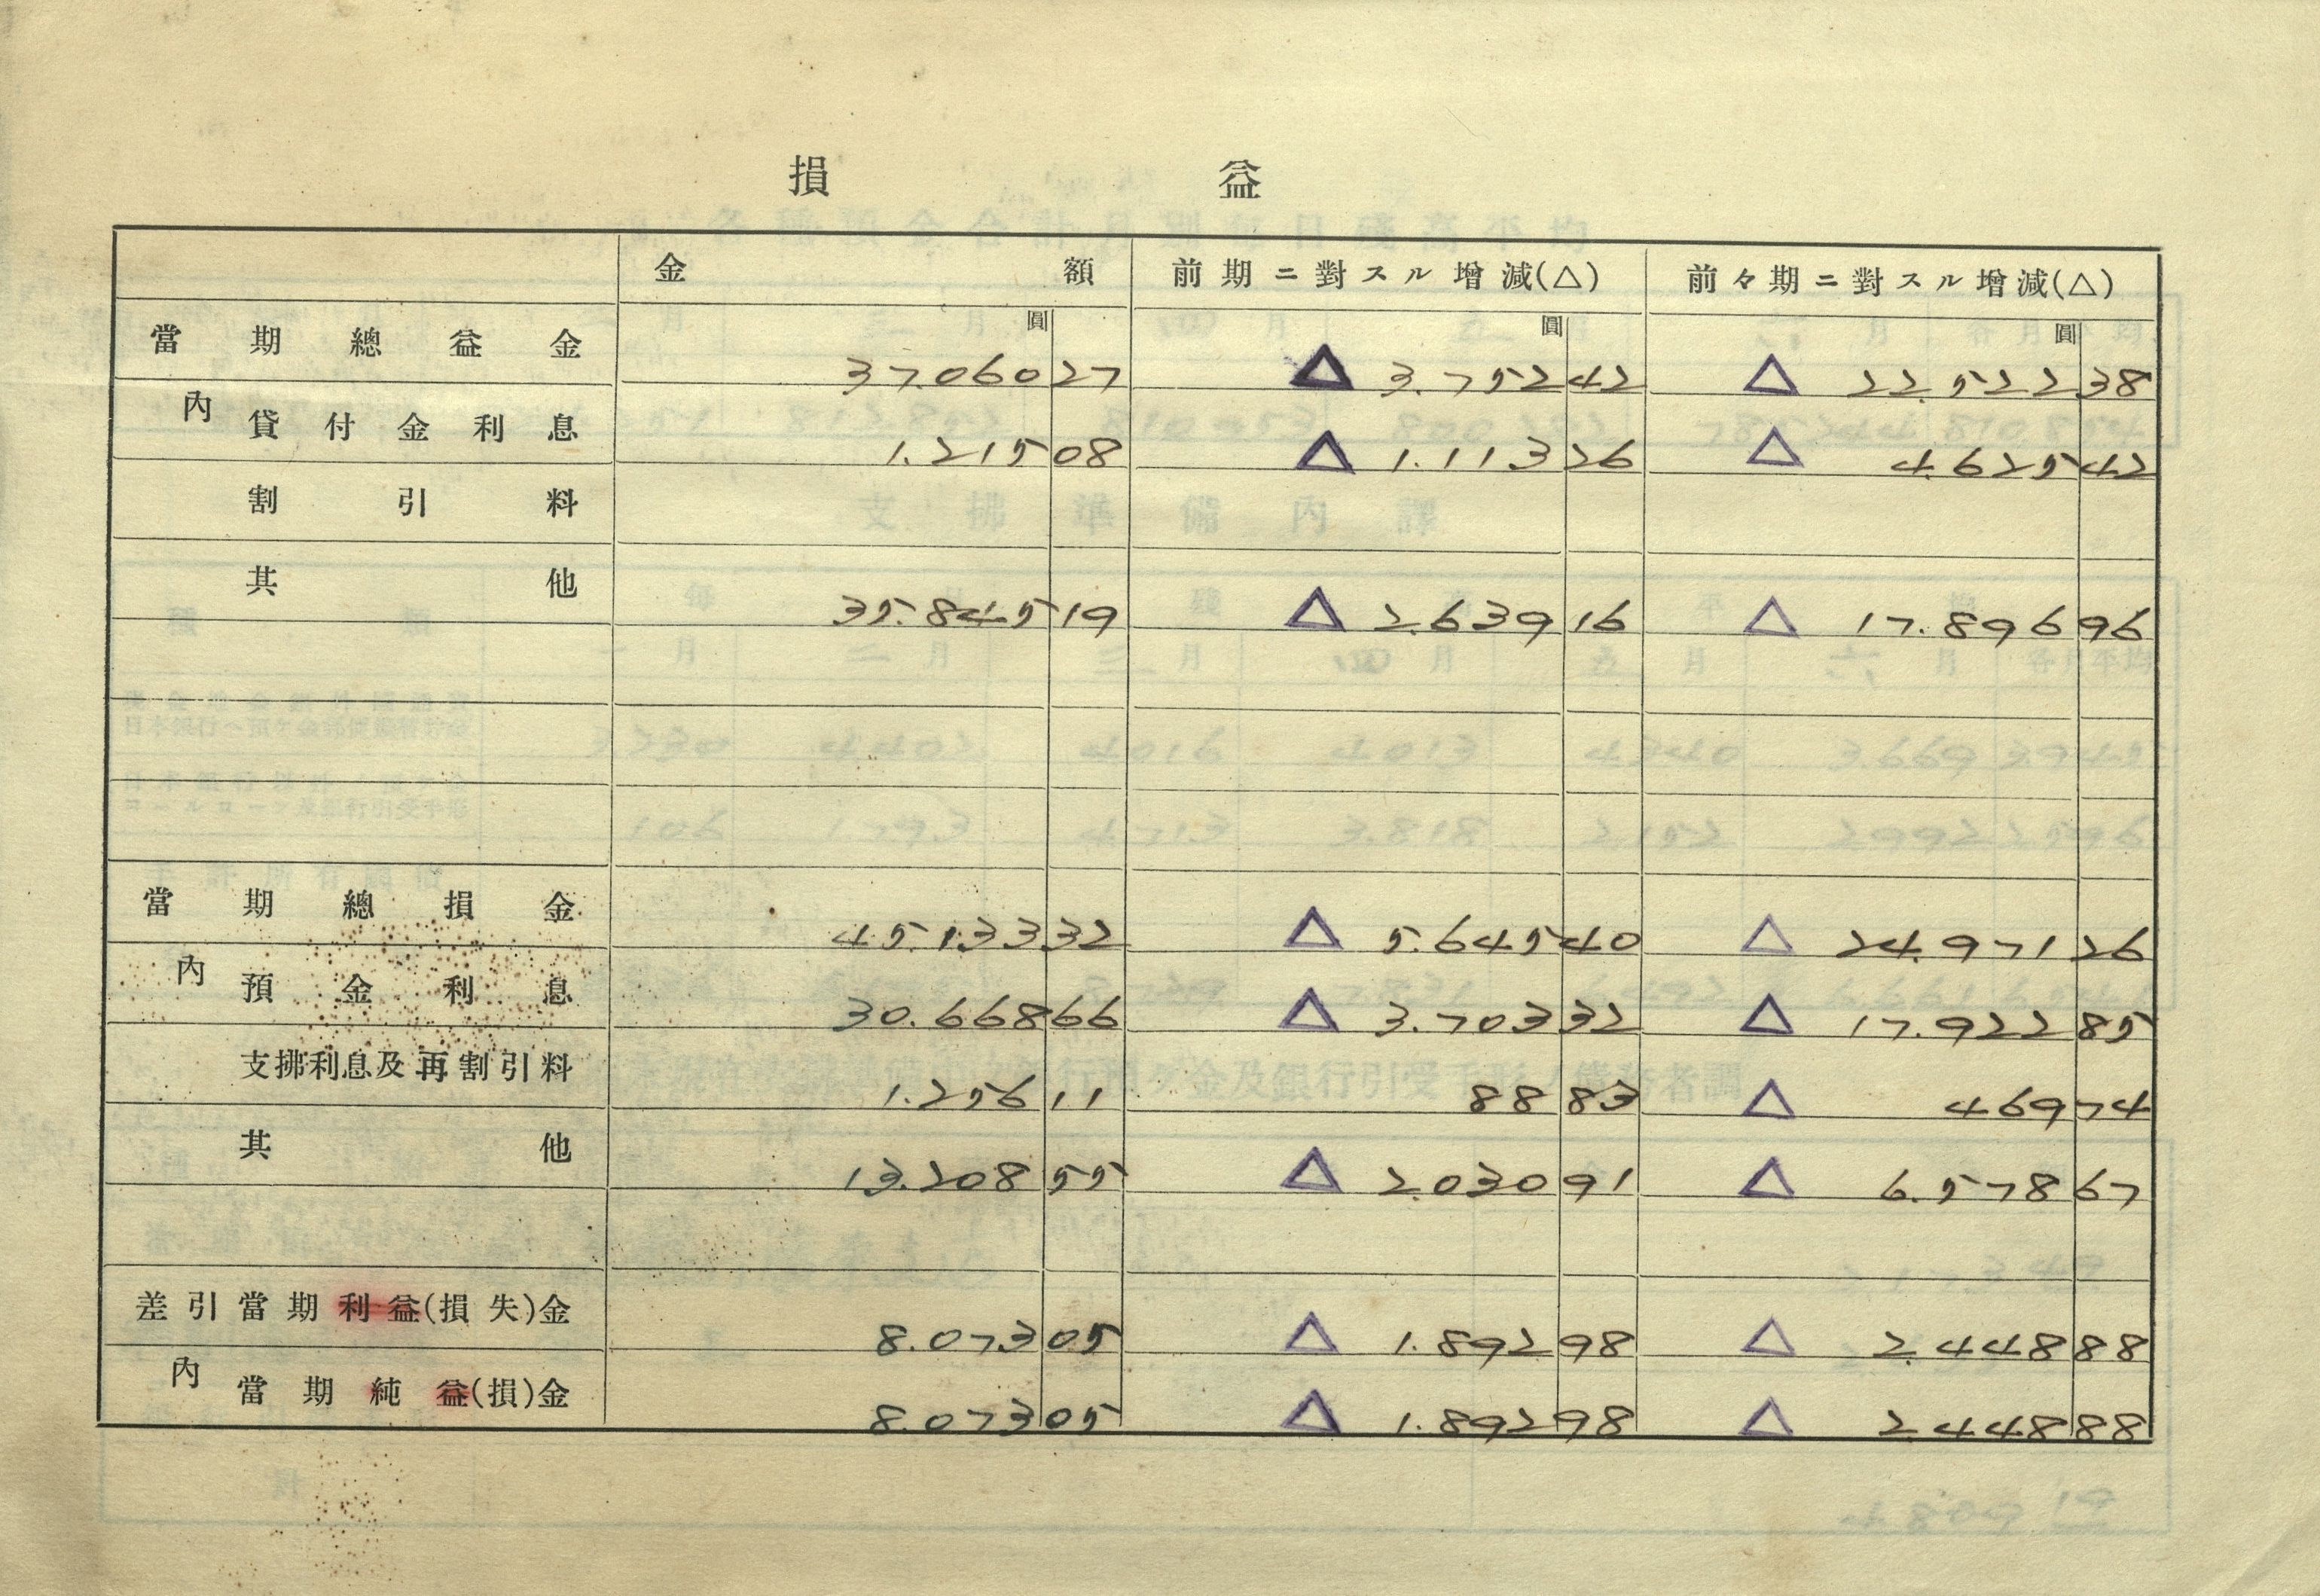 損益
金額 前期ニ對スル增減(△) 前々期ニ對スル增減(△)
圓 圓 圓
當期總益金 37.060 27 △ 3.752 42 △ 22.522 38
內 貸付金利息 1.215 08 △ 1.113 26 △ 4.625 42
割引料
其他 35.845 19 △ 2.639 16 △ 17.896 96
當期總損金 45.133 32 △ 5.645 40 △ 24.971 26
內 預金利息 30.668 66 △ 3.703 32 △ 17.922 85
支拂利息及再割引料 1.256 11 88 83 △ 469 74
其他 13.208 55 △ 2.030 91 △ 6.578 67
差引當期利益(損失)金 8.073 05 △ 1.892 98 △ 2.448 88
內 當期純益(損)金 8.073 05 △ 1.892 98 △ 2.448 88